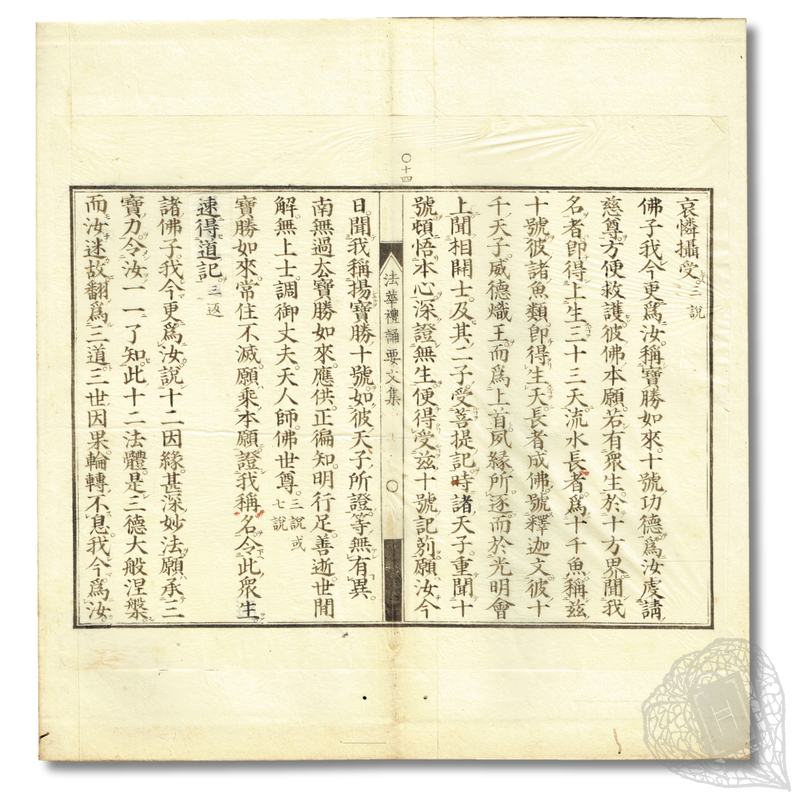 〇十四
哀憐攝受三說
佛子我今更爲汝稱寶勝如來十號功德爲汝虔請
慈尊方便救護彼佛本願若有衆生於十方界聞我
名者即得上生三十三天流水長者爲十千魚稱茲
十號彼諸魚類即得生天長者成佛號釋迦文彼十
千天子威德熾王而爲上首夙緣所逐而於光明會
上聞相閞士及其二子受菩提記時諸天子重聞十
號頓悟本心深證無生便得受茲十號記莂願汝今
法華禮誦要文集
〇
日聞我稱揚寶勝十號如彼天子所證等無有異
南無過去寶勝如來應供正徧知明行足善逝世間
解無上士調御丈夫天人師佛世尊三說或七說
寶勝如來常住不滅願乘本願證我稱名令此衆生
速得道記三返
諸佛子我今更爲汝說十二因緣甚深妙法願承三
寶力令汝一一了知此十二法體是三德大般涅槃
而汝迷故翻爲三道三世因果輪轉不息我今爲汝
H